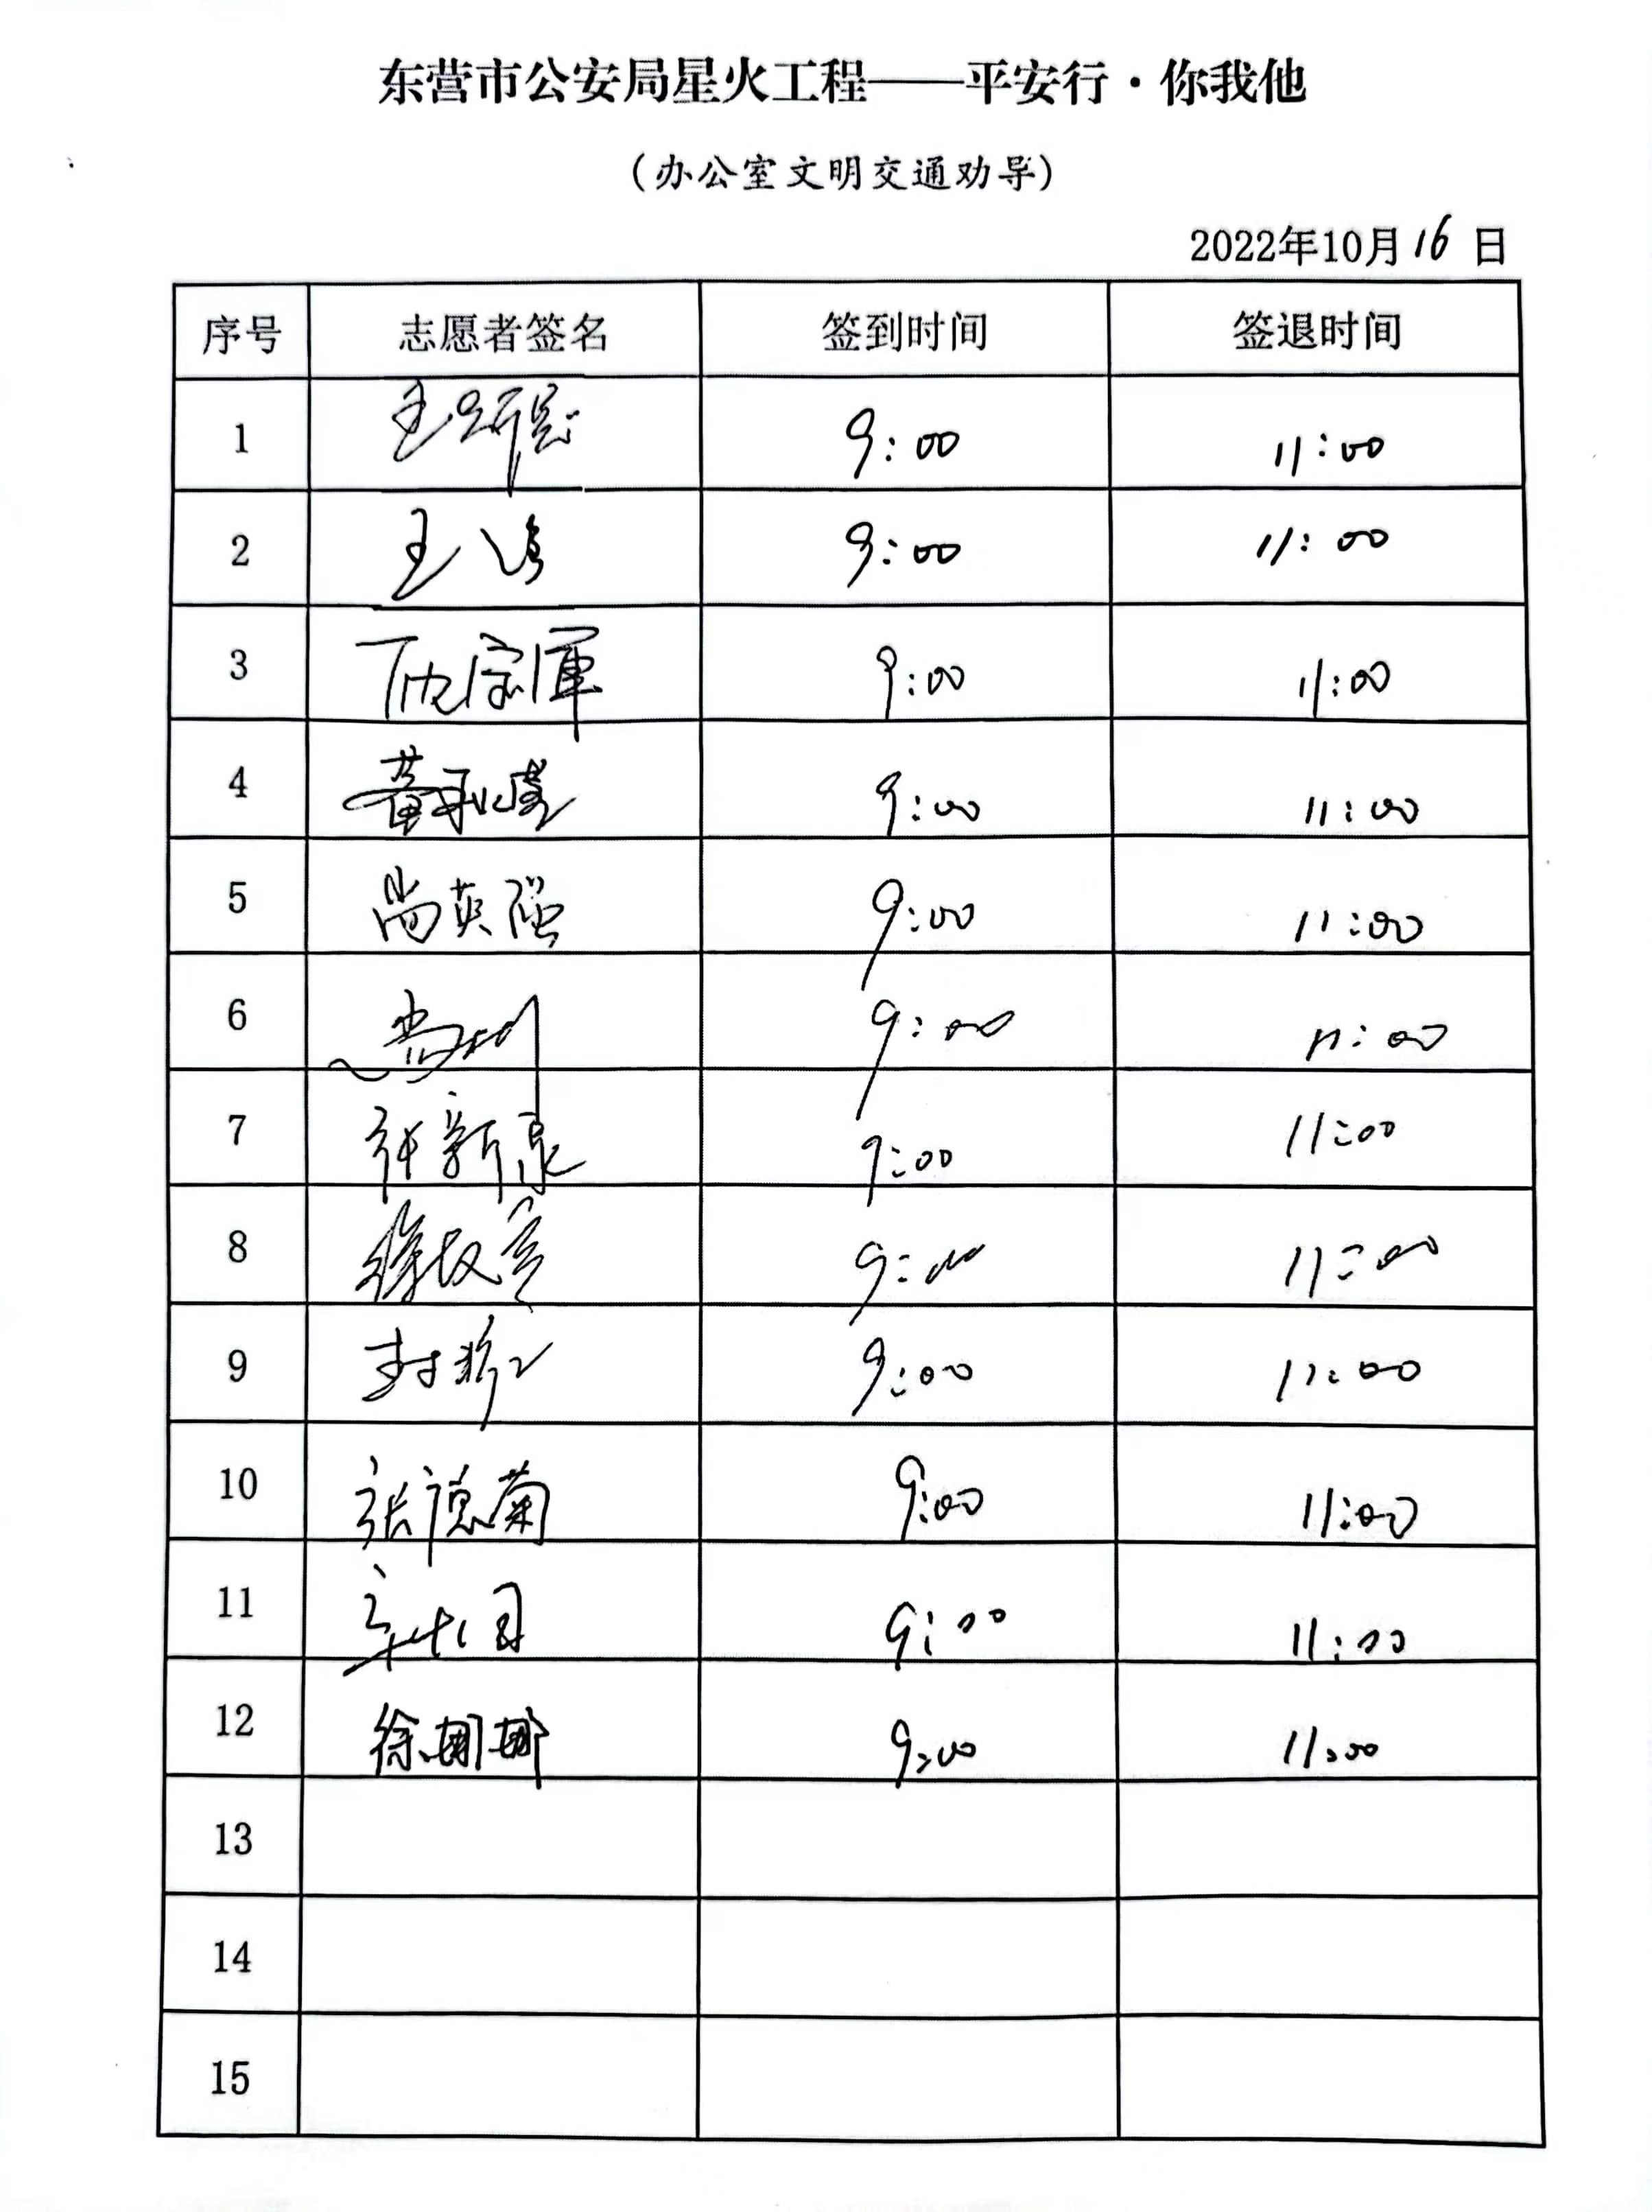 东营市公安局星火工程——平安行·你我他
(办公室文明交通劝导)
2022年10月16日
序号 志愿者签名 签到时间 签退时间
1 9:00 11:00
2 王涛 9:00 11:00
3 9:00 11:00
4 9:00 11:00
5 尚英强 9:00 11:00
6 9:00 11:00
7 张新泉 9:00 11:00
8 9:00 11:00
9 9:00 11:00
10 张德菊 9:00 11:00
11 9:00 11:00
12 徐娜娜 9:00 11:00
13
14
15